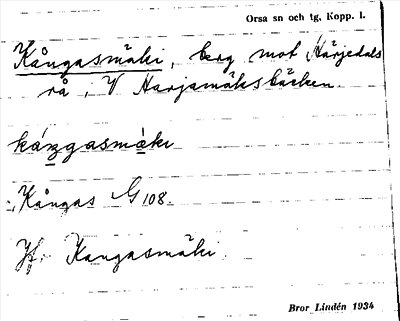 Orsa sn och tg, Kopp. l.
Kångasmäki, berg mot Härjedals
rå, V Harjamäksbäcken.
káŋgasmàki
Kångas G 108.
Jf. Kangasmäki
Bror Lindén 1934